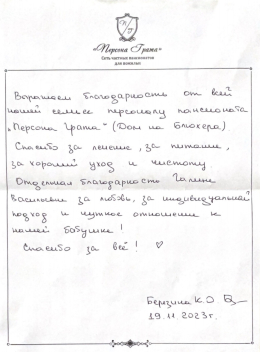 "Персона Грата"
Сеть частных пансионатов
для пожилых
Выражаем благодарность от всей
нашей семьи персоналу пансионата
„Персона Грата" (Дом на Блюхера)
Спасибо за лечение, за питание,
за хороший уход и чистоту
Отдельная благодарность Галине
Васильевне за любовь, за индивидуальный
подход и чуткое отношение к
нашей бабушке!
Спасибо за всё! ♡
Березина К.О.
19.11.2023г.